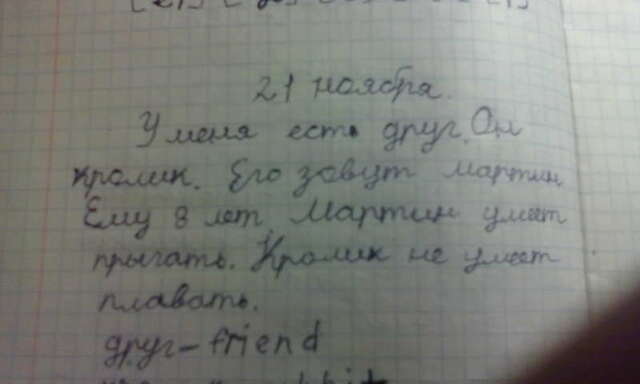 21 ноября.
У меня есть друг. Он
кролик. Его зовут Мартин
Ему 8 лет. Мартин умеет
прыгать. Кролик не умеет
плавать.
друг – friend